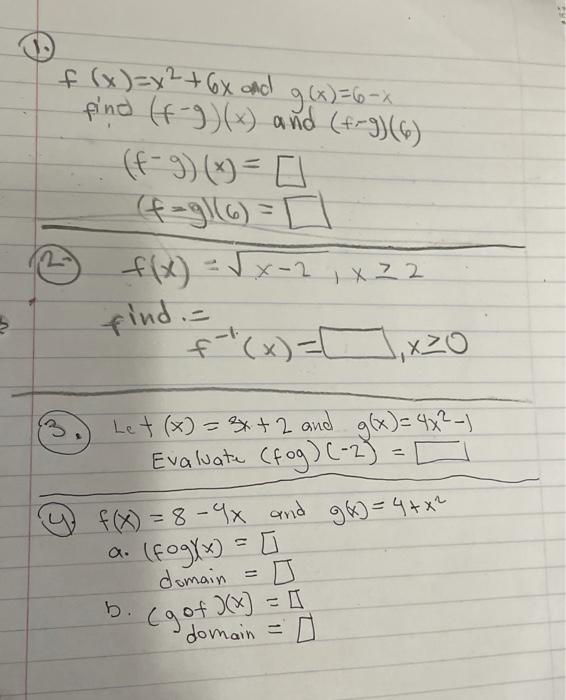 1.
f(x)=x²+6x and g(x)=6-x
find (f-g)(x) and (f-g)(6)
(f-g)(x)= □
(f-g)(6)= □
2. f(x) = √x-2, x ≥ 2
find.=
f⁻¹(x)= □, x≥0
3. Let (x) = 3x+2 and g(x)=4x²-1
Evaluate (fog)(-2) = □
4. f(x) = 8-4x and g(x) = 4+x²
a. (fog)(x) = □
domain = □
b. (gof)(x) = □
domain = □